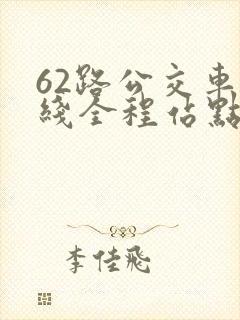 62路公交車
綫全程佔點
李佳飛